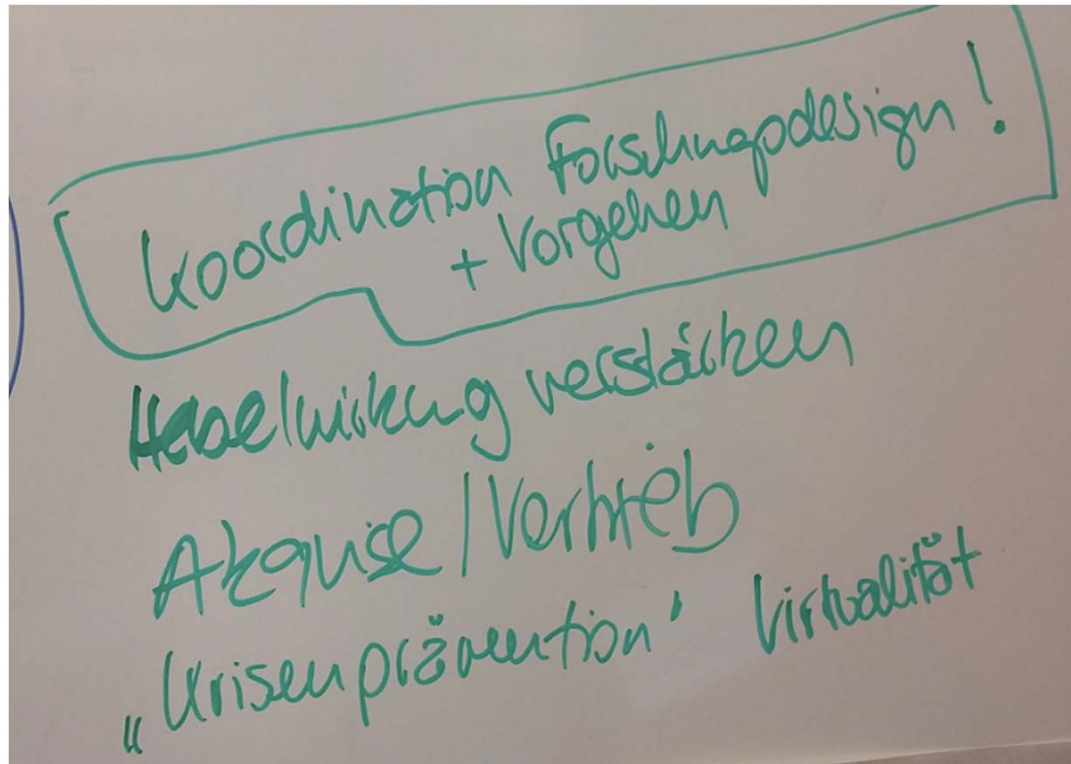 Koordination Forschungsdesign!
+ Vorgehen
Hebelwirkung verstärken
Akquise/Vertrieb
„Krisenprävention' Virtualität